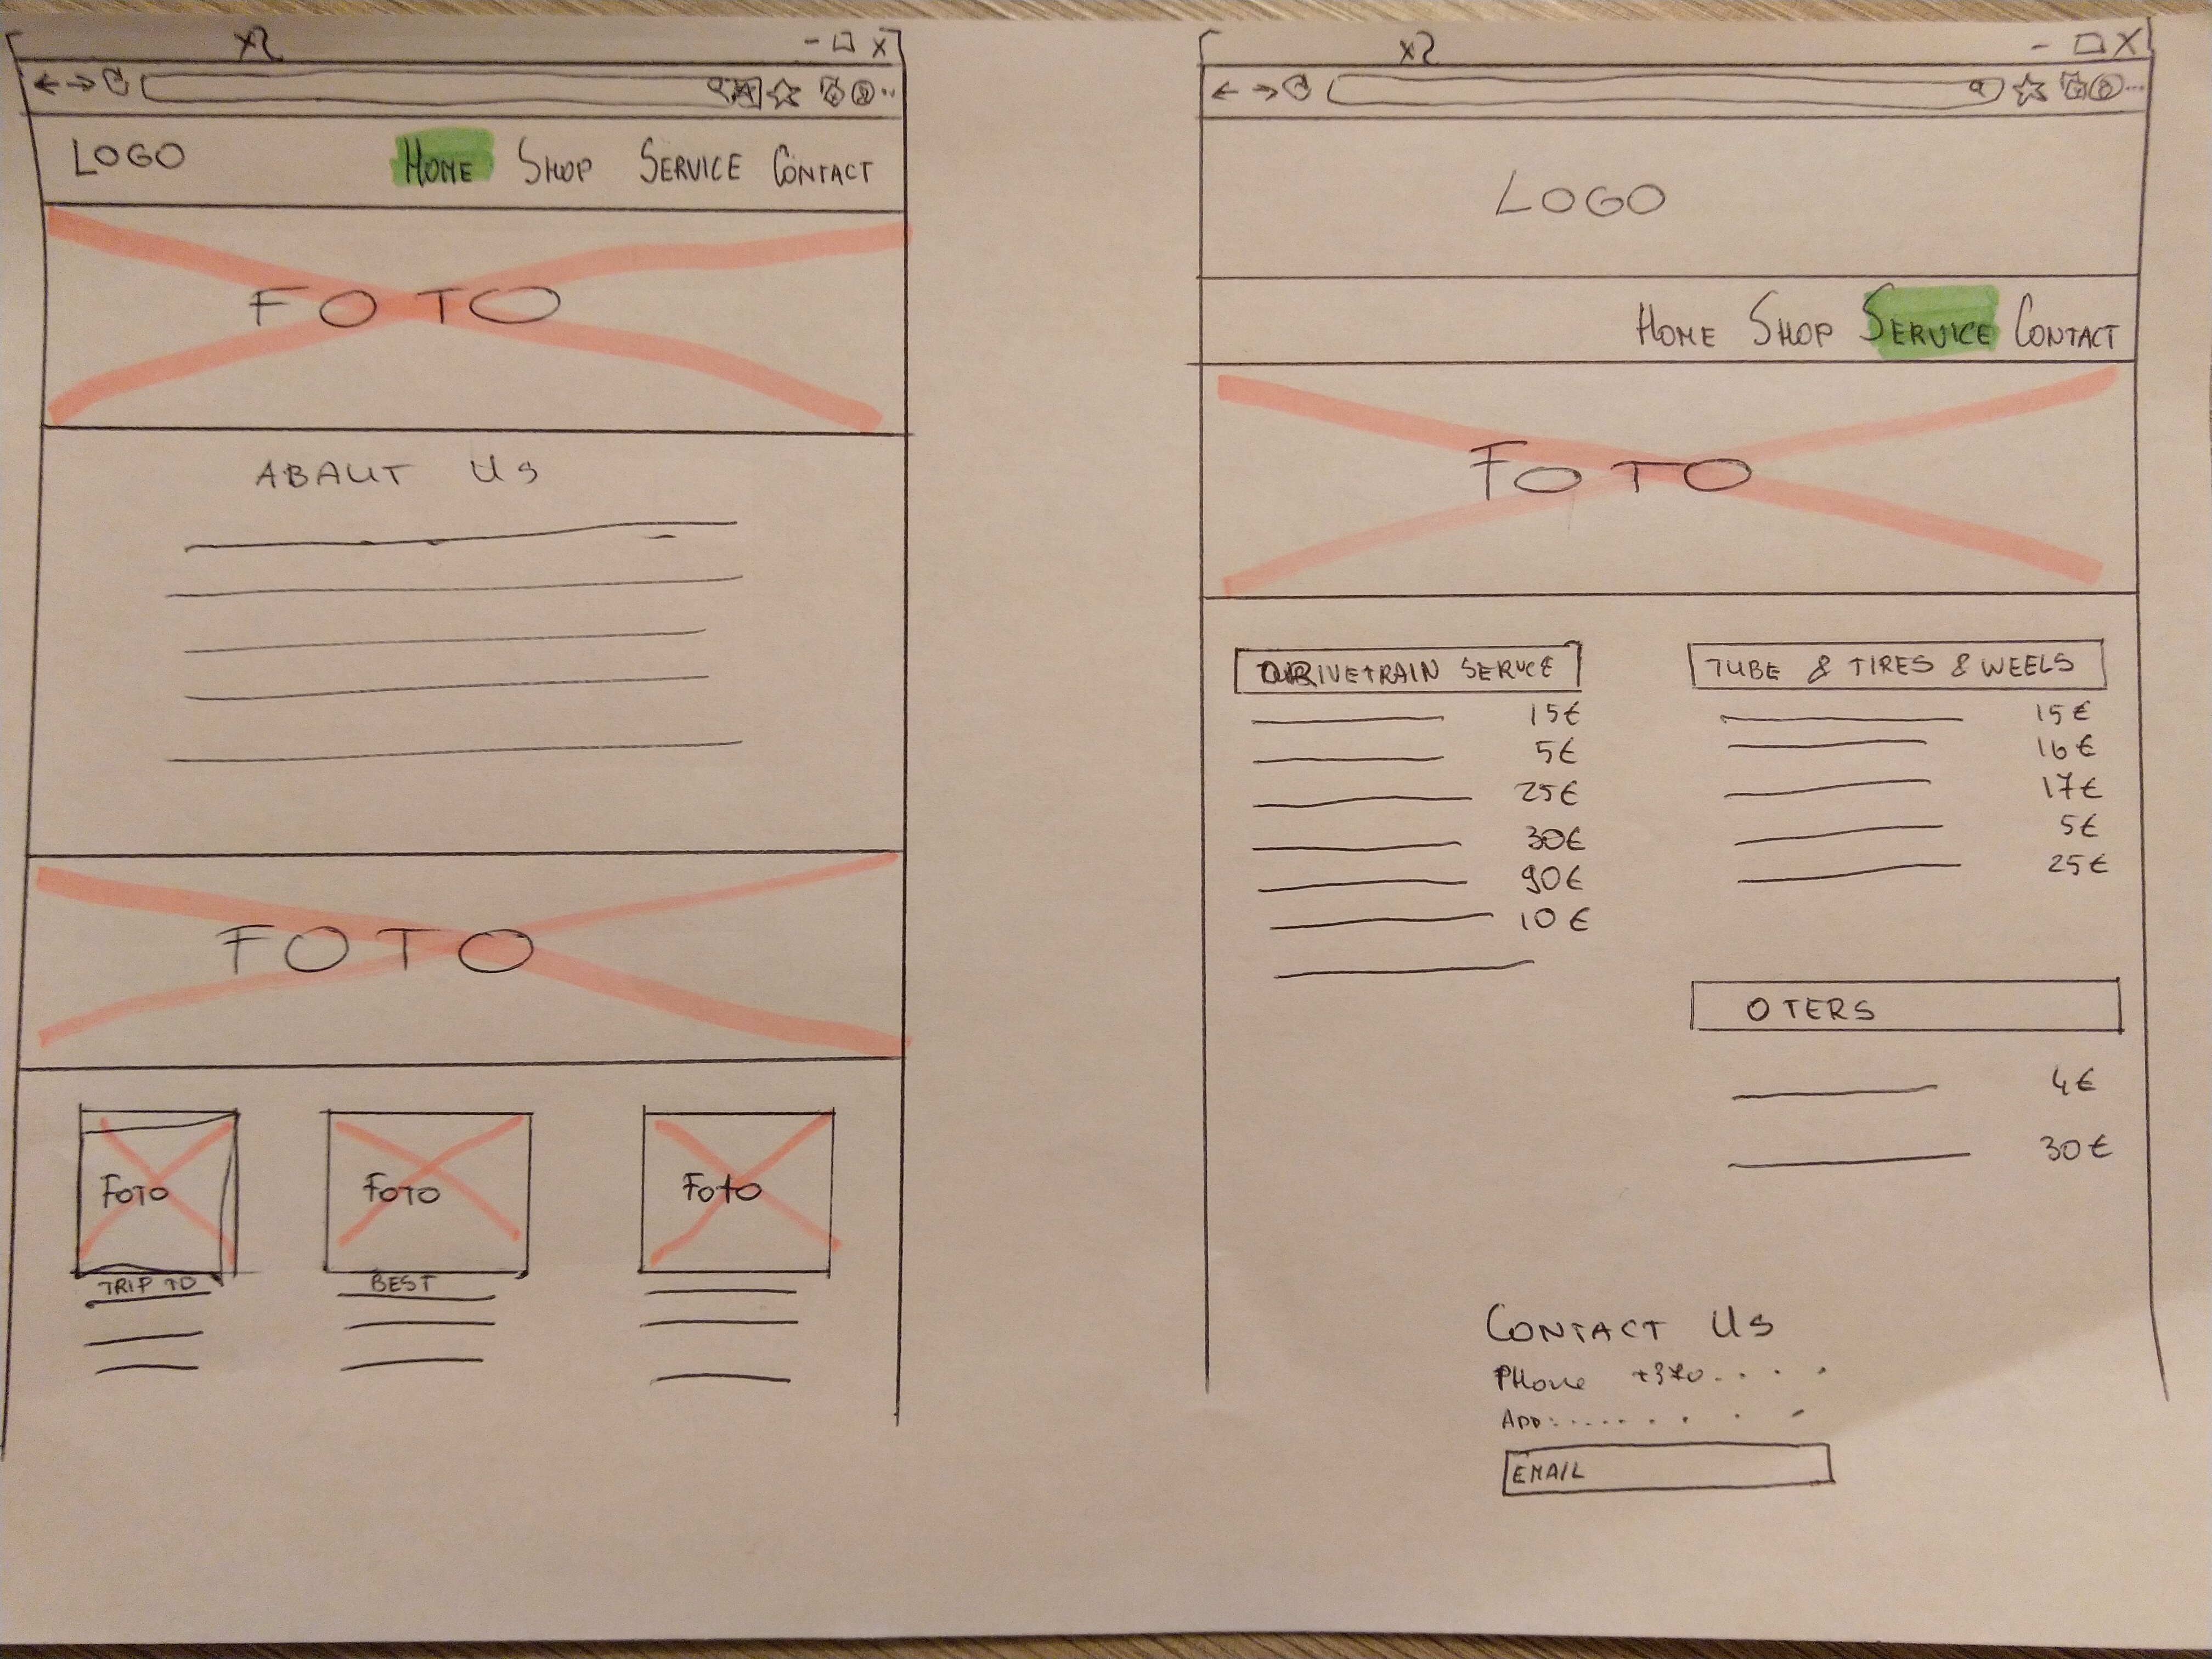 LOGO
HOME SHOP SERVICE CONTACT
FOTO
ABAUT US
FOTO
FOTO
FOTO
FOTO
TRIP TO
BEST
LOGO
HOME SHOP SERVICE CONTACT
FOTO
DRIVETRAIN SERVICE
15€
5€
25€
30€
90€
10€
TUBE & TIRES & WEELS
15€
16€
17€
5€
25€
OTERS
4€
30€
CONTACT US
PHONE +370......
ADD:........
EMAIL